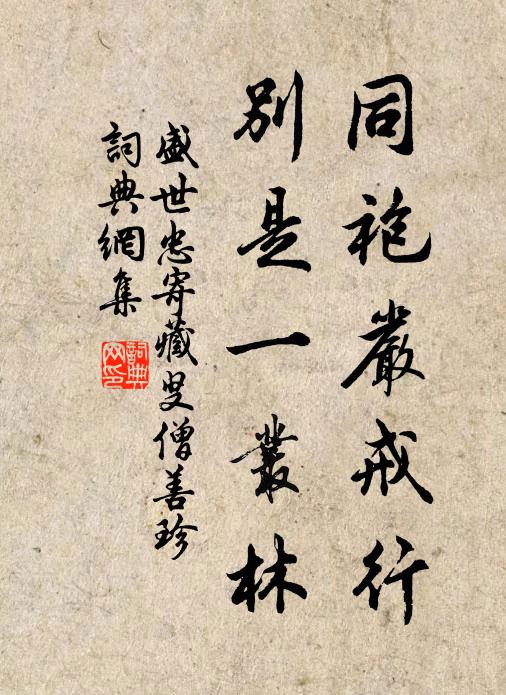 同袍嚴戒行
別是一叢林
盛世忠寄藏叟僧善珍
詞典網集
詞典
网印